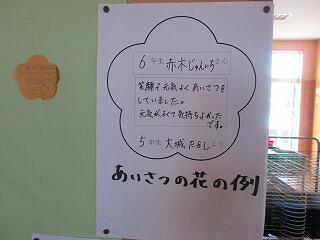 6年生 赤木じゅんいちさん
笑顔で元気よくあいさつを
していました。
元気がよくて気持ちよかった
です。
5年生 大城 たかしより
あいさつの花の例